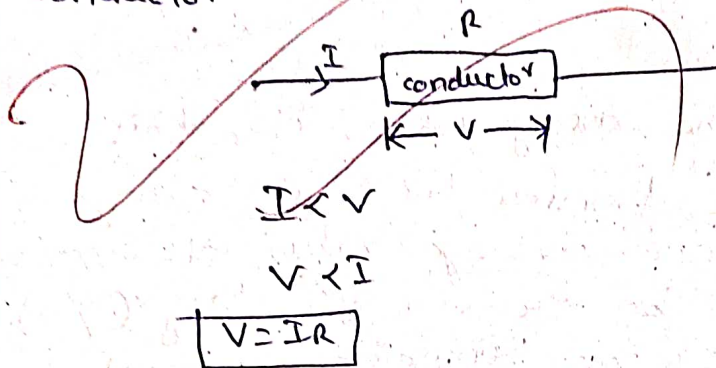 R
I
conductor
V
I < V
V < I
V = IR